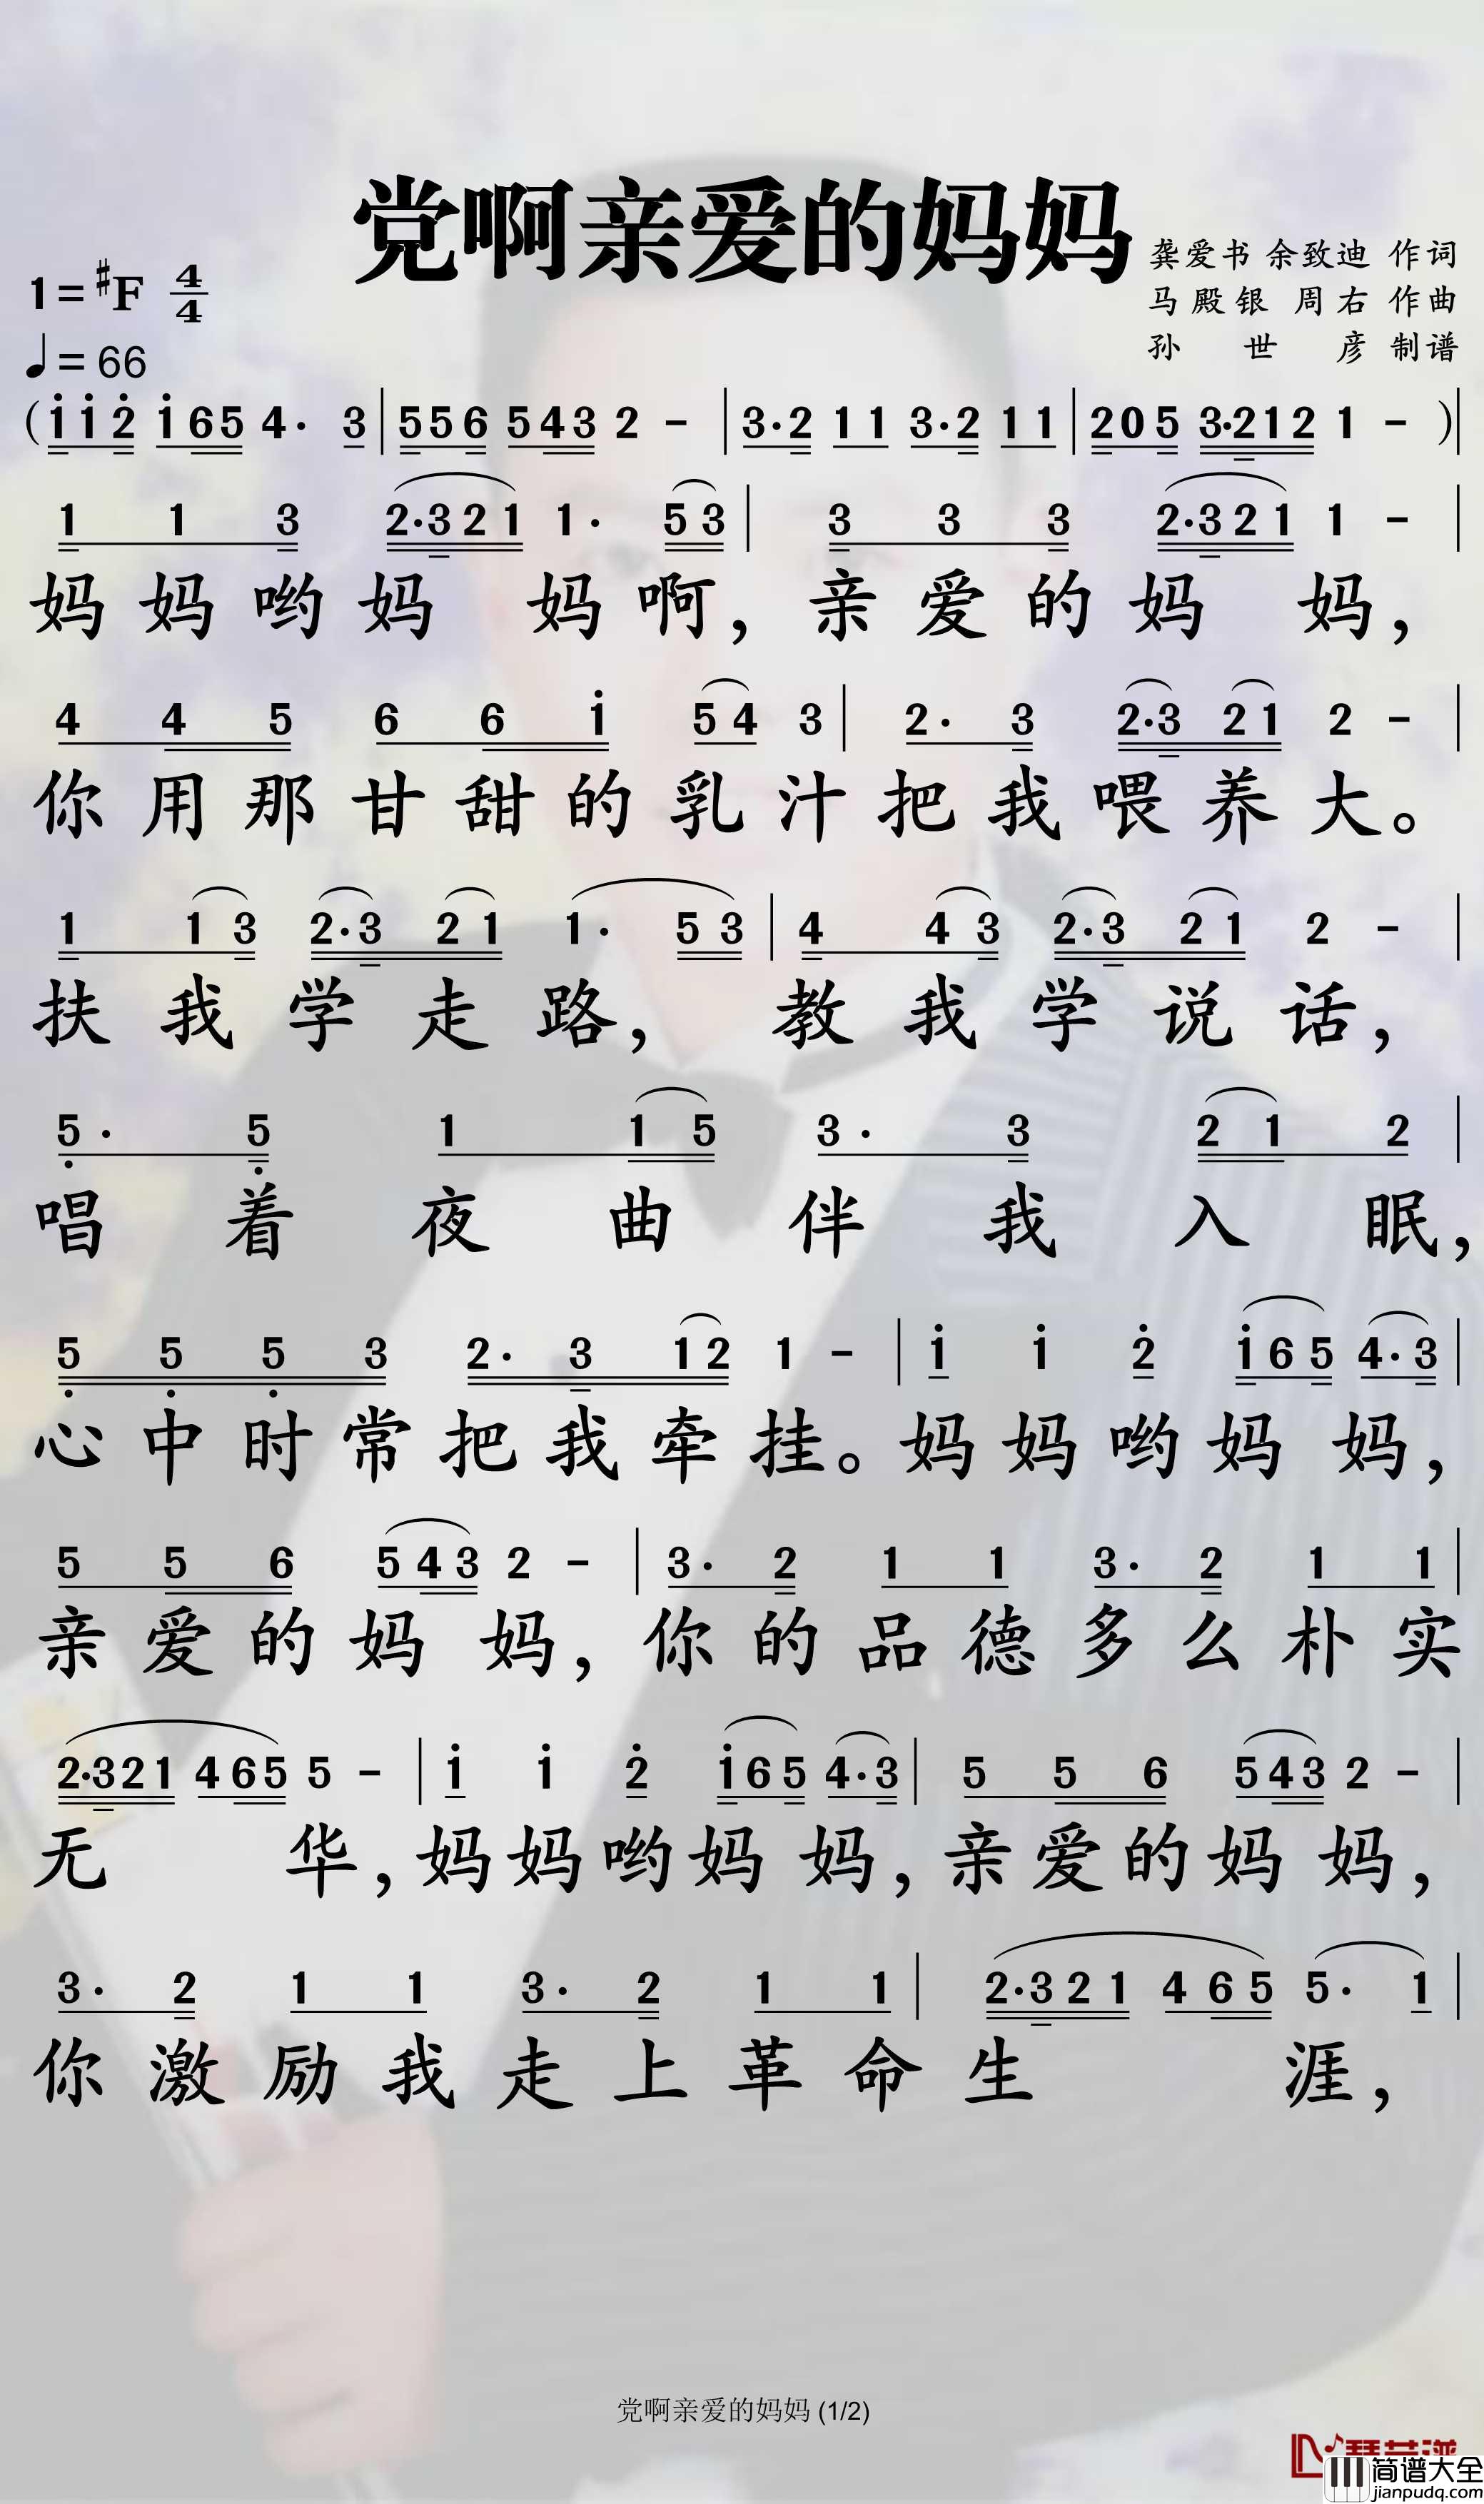 党啊亲爱的妈妈
龚爱书 余致迪 作词
马殿银 周右 作曲
孙世彦 制谱
1=♯F 4/4
♩=66
(i i 2̇ i 6 5 4. 3 | 5 5 6 5 4 3 2 - | 3. 2 1 1 3. 2 1 1 | 2 0 5 3. 2 1 2 1 - )|
1 1 3 2. 3 2 1 1. 5 3 | 3 3 3 2. 3 2 1 1 - |
妈妈哟妈 妈啊，亲爱的妈 妈，
4 4 5 6 6 i 5 4 3 | 2. 3 2. 3 2 1 2 - |
你用那甘甜的乳汁把我喂养大。
1 1 3 2. 3 2 1 1. 5 3 | 4 4 3 2. 3 2 1 2 - |
扶我学走路，教我学说话，
5̣. 5̣ 1 1 5 3. 3 2 1 2 |
唱着夜曲伴我入眠，
5̣ 5̣ 5̣ 3 2. 3 1 2 1 - | i i 2̇ i 6 5 4. 3 |
心中时常把我牵挂。妈妈哟妈 妈，
5 5 6 5 4 3 2 - | 3. 2 1 1 3. 2 1 1 |
亲爱的妈 妈，你的品德多么朴实
2. 3 2 1 4 6 5 5 - | i i 2̇ i 6 5 4. 3 | 5 5 6 5 4 3 2 - |
无 华，妈妈哟妈 妈，亲爱的妈 妈，
3. 2 1 1 3. 2 1 1 | 2. 3 2 1 4 6 5 5. 1 |
你激励我走上革命生 涯，
党啊亲爱的妈妈 (1/2)
简谱大全
jianpudq.com